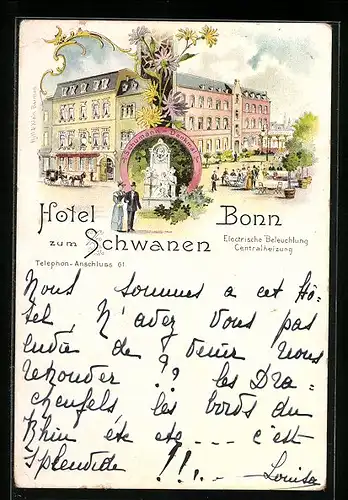 Schumann-Denkmal
Hotel zum Schwanen Bonn
Electrische Beleuchtung
Centralheizung
Telephon-Anschluss 61
Nous sommes a cet Hô-
tel, N'avez Vous pas
envie de venir nous
retrouver ?? les Dra-
chenfels, les bords du
Rhin etc etc --- c'est
splendide !!... Louisa